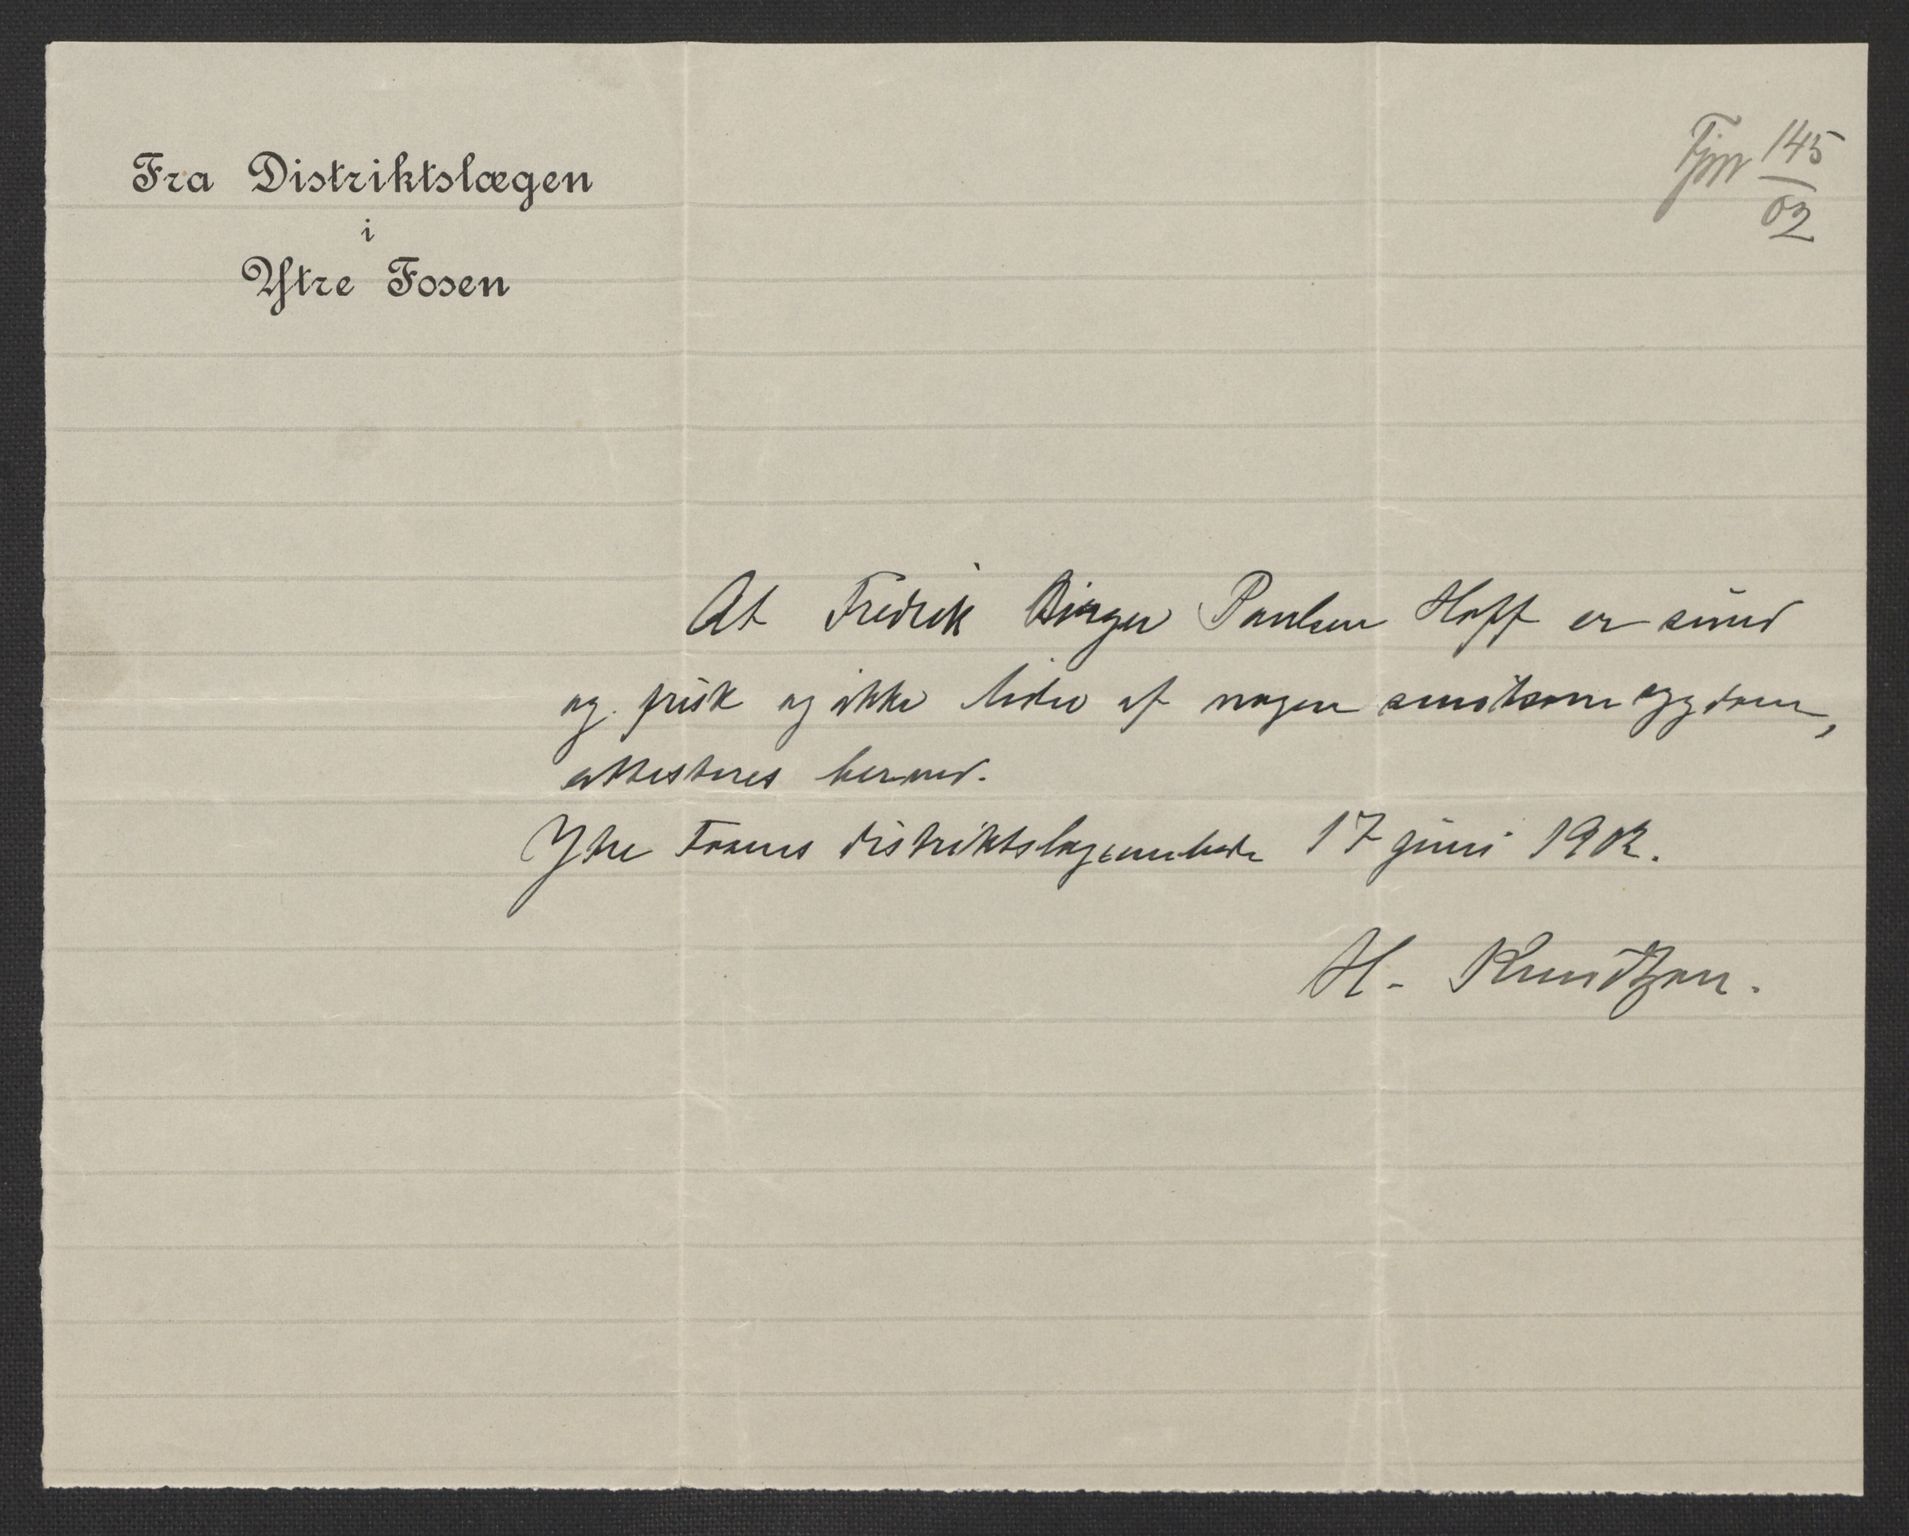 Fra Distriktslægen
i
Ytre Fosen
145
02
At Fredrik Birger Paulsen Hoff er sund
og frisk og ikke lider af nogen smitsom sygdom,
attesteres herved.
Ytre Fosens distriktslægeembede 17 juni 1902.
H. Knudtzon.